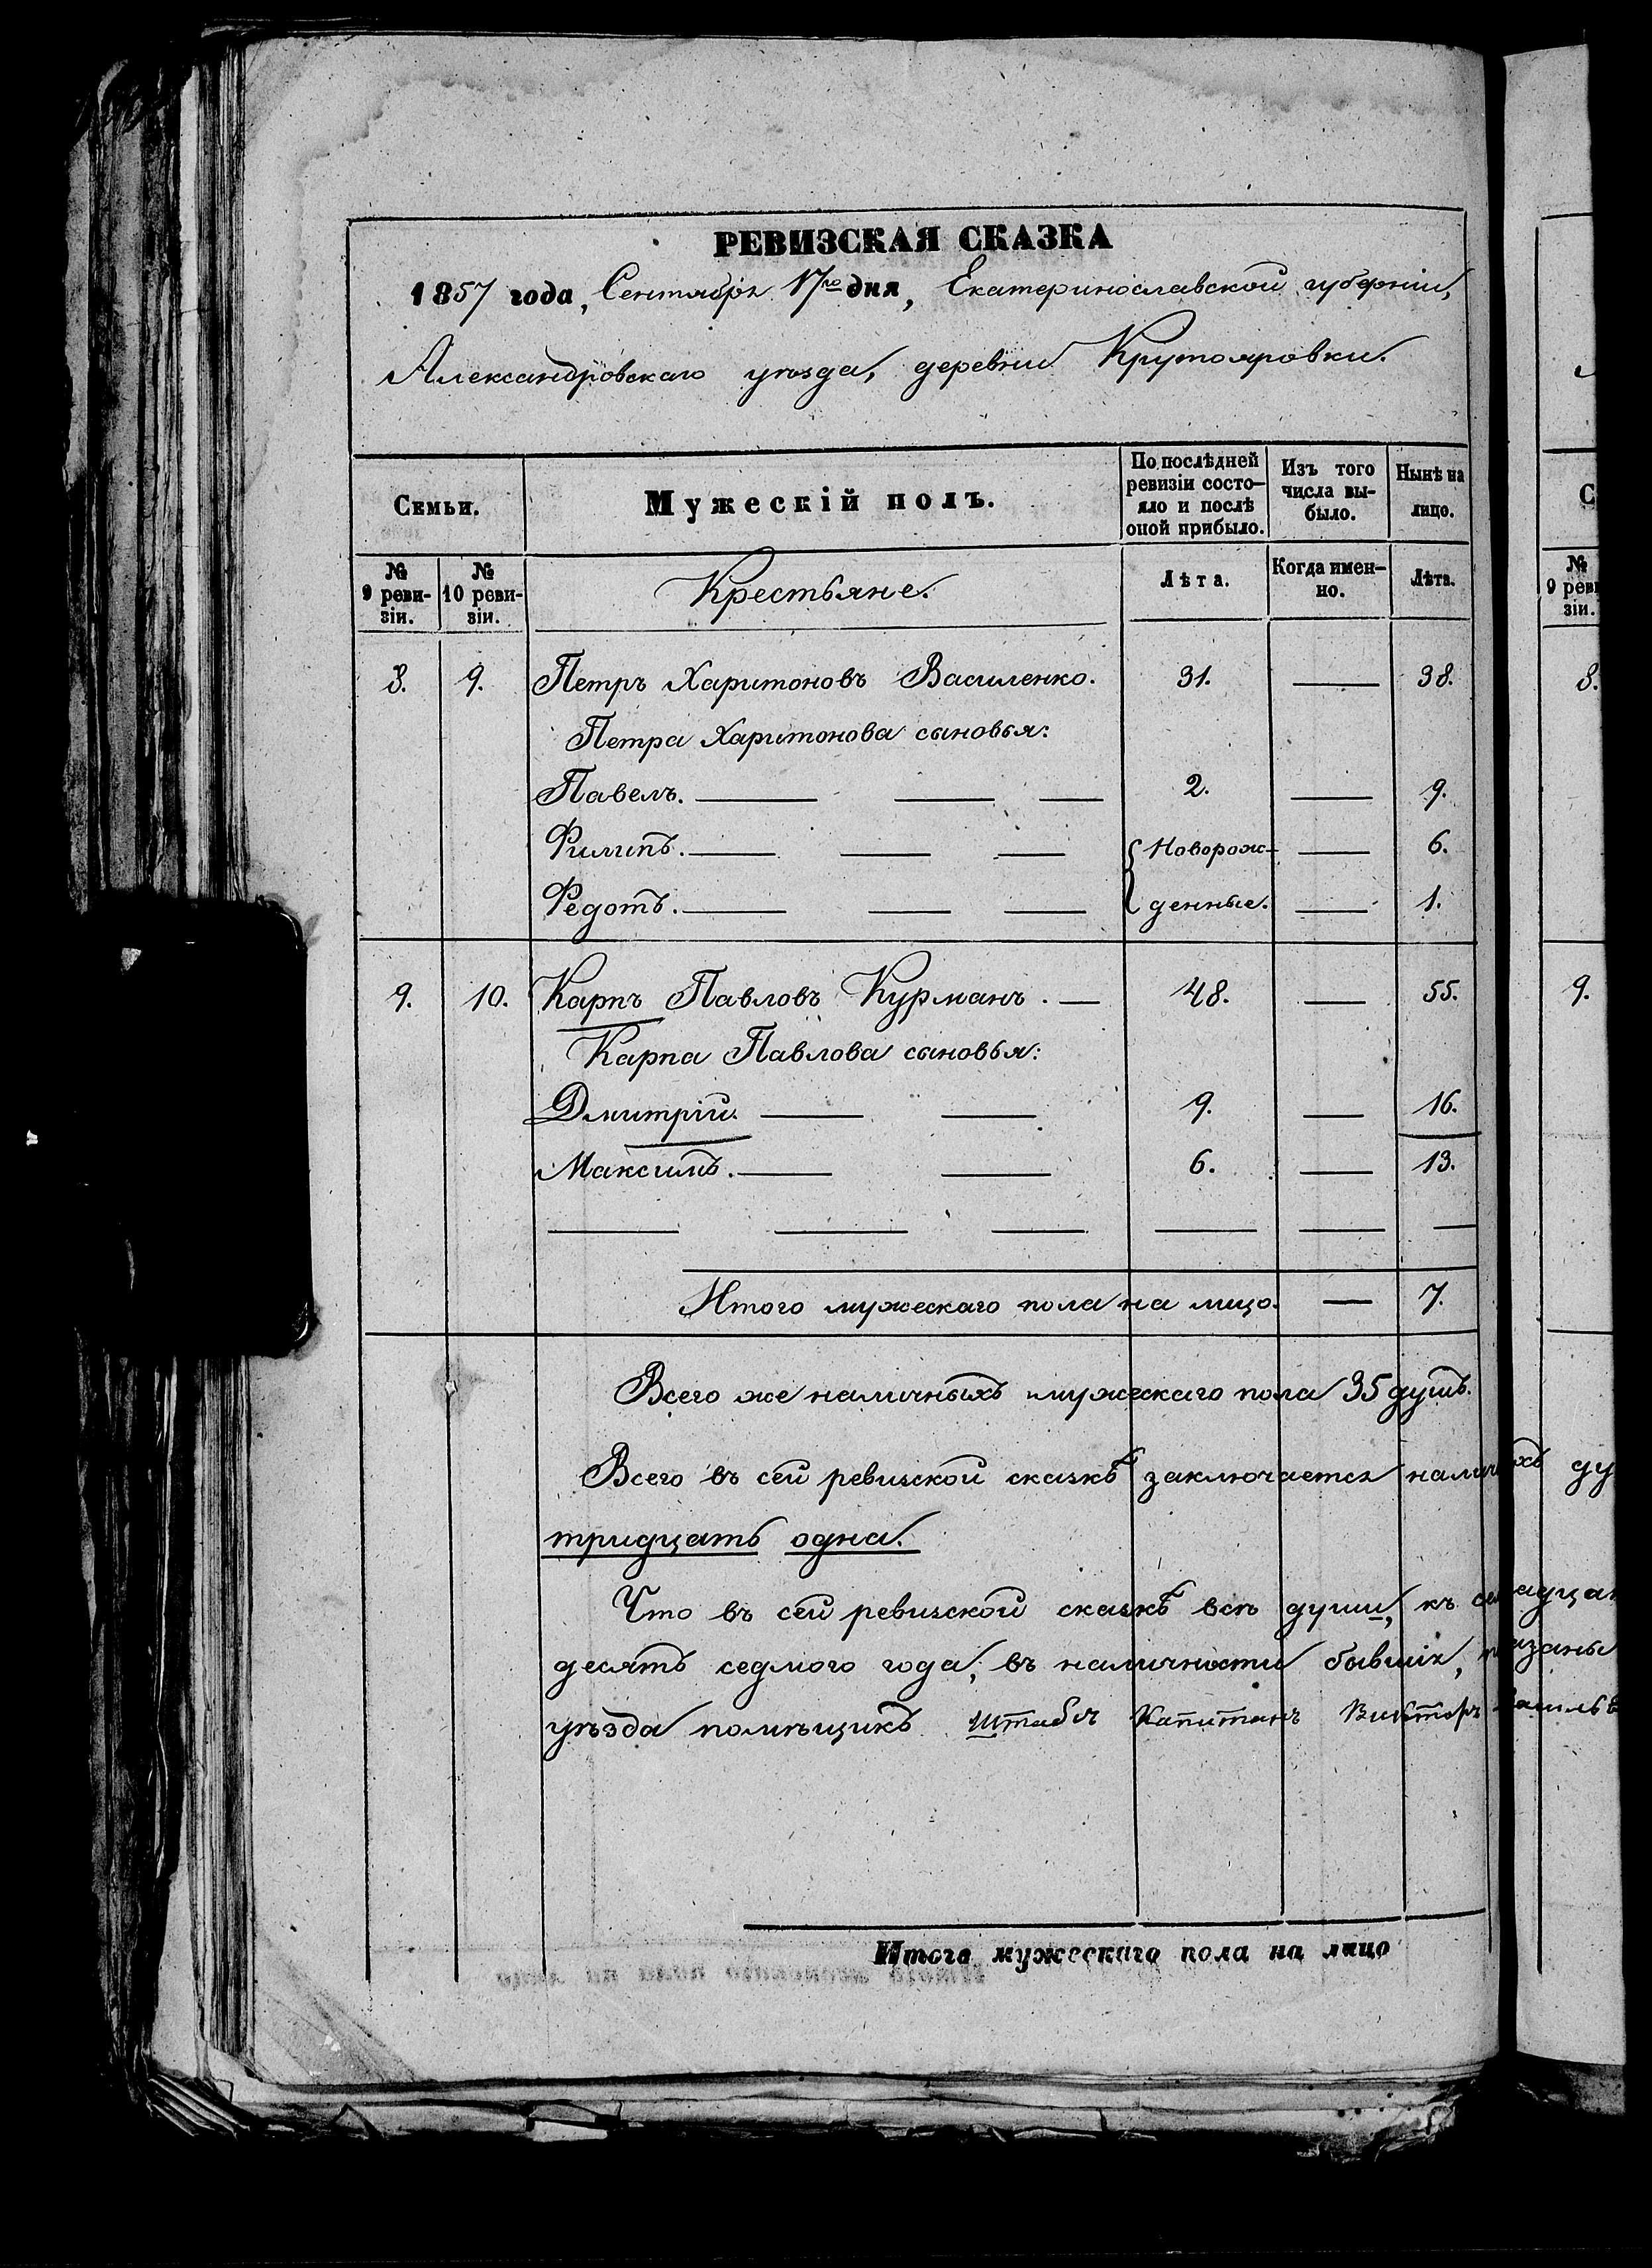 РЕВИЗСКАЯ СКАЗКА
1857 года, Сентября 17го дня, Екатеринославской губерніи,
Александровскаго уѣзда, деревни Крутояровки.
Семьи.
Мужескій полъ.
По послѣдней ревизіи состо-
яло и послѣ
оной прибыло.
Изъ того
числа вы-
было.
Нынѣ на
лицо.
№
9 реви-
зіи.
№
10 реви-
зіи.
Крестьяне.
Лѣта.
Когда имен-
но.
Лѣта.
8. 9. Петръ Харитоновъ Василенко. 31. — 38.
Петра Харитонова сыновья:
Павелъ. — — — 2. — 9.
Филипъ. — — — Новорож- — 6.
Федотъ. — — — денные. — 1.
9. 10. Карпъ Павловъ Курманъ. — 48. — 55.
Карпа Павлова сыновья:
Дмитрій. — — 9. — 16.
Максимъ. — — 6. — 13.
— — — — — —
Итого мужескаго пола на лицо. — 7.
Всего же наличныхъ мужескаго пола 35 душъ.
Всего въ сей ревизской сказкѣ заключается
тридцать одна.
Что въ сей ревизской сказкѣ всѣ души, къ
десятъ седмого года, въ наличности бывшія,
уѣзда помѣщикъ Штабсъ Капитанъ Викторъ
Итого мужескаго пола на лицо
№
9 реви
зіи.
8.
9.